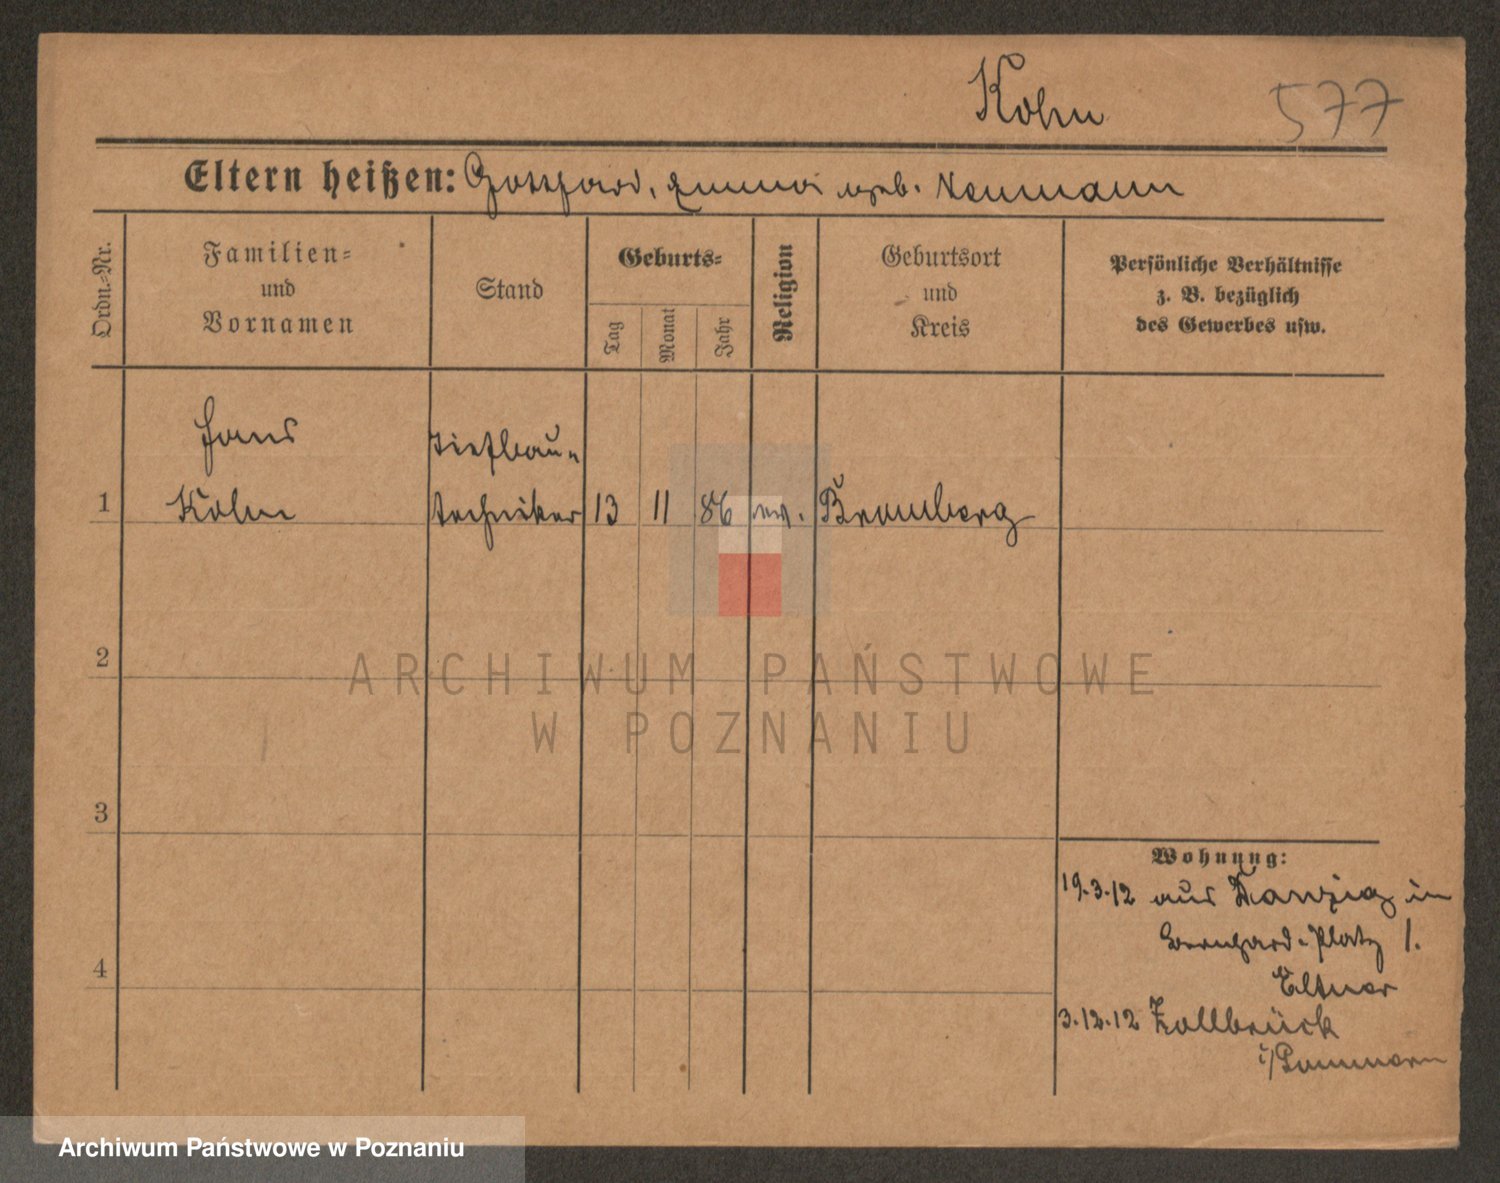 Kohn 577
Eltern heißen: Gotthard, Emma geb. Neumann
Ordn.-Nr.
Familien-
und
Vornamen
Stand
Geburts-
Tag
Monat
Jahr
Religion
Geburtsort
und
Kreis
Persönliche Verhältnisse
z. B. bezüglich
des Gewerbes usw.
Hans Tiefbau-
1 Kohn techniker 13 11 86 ev. Bromberg
2
ARCHIWUM PAŃSTWOWE
W POZNANIU
3
Wohnung:
19.3.12 aus Danzig in
Bernhard-Platz 1.
4
3.12.12 Zollbrück
i/Pommern
Archiwum Państwowe w Poznaniu